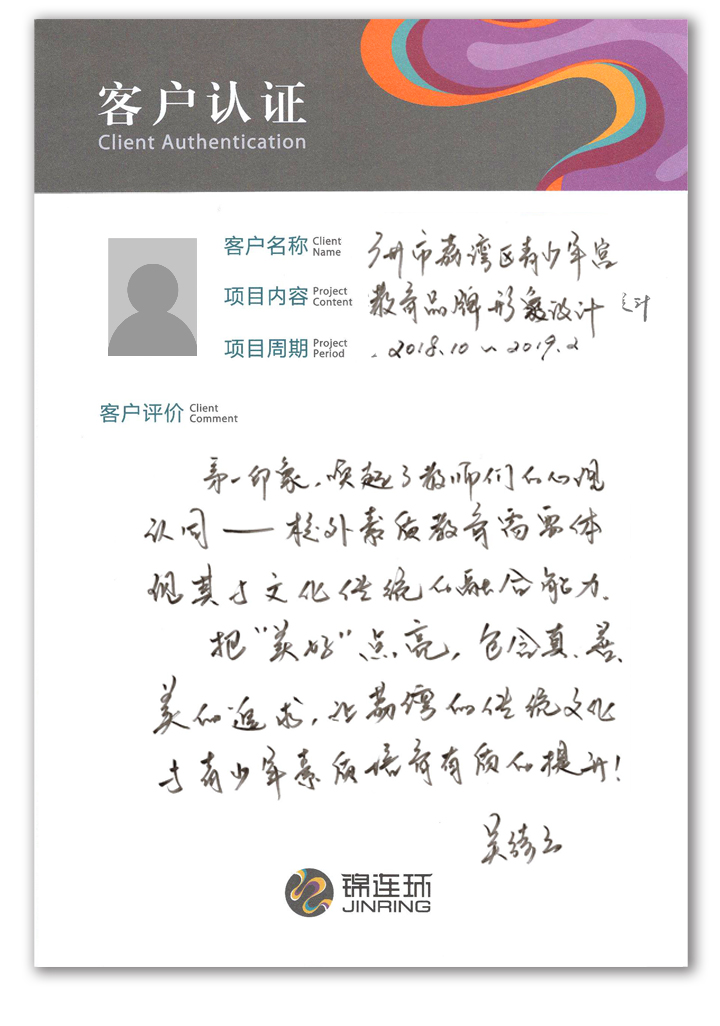 客户认证
Client Authentication
客户名称 Client Name 广州市荔湾区青少年宫
项目内容 Project Content 教育品牌形象设计
项目周期 Project Period 2018.10 ~ 2019.2
客户评价 Client Comment
第一印象,唤起了教师们的心理
认同——校外素质教育需要体
现其与文化传统的融合能力.
把"美好"点亮,包含真、善、
美的追求,让荔湾的传统文化
与青少年素质培育有质的提升!
锦连环
JINRING